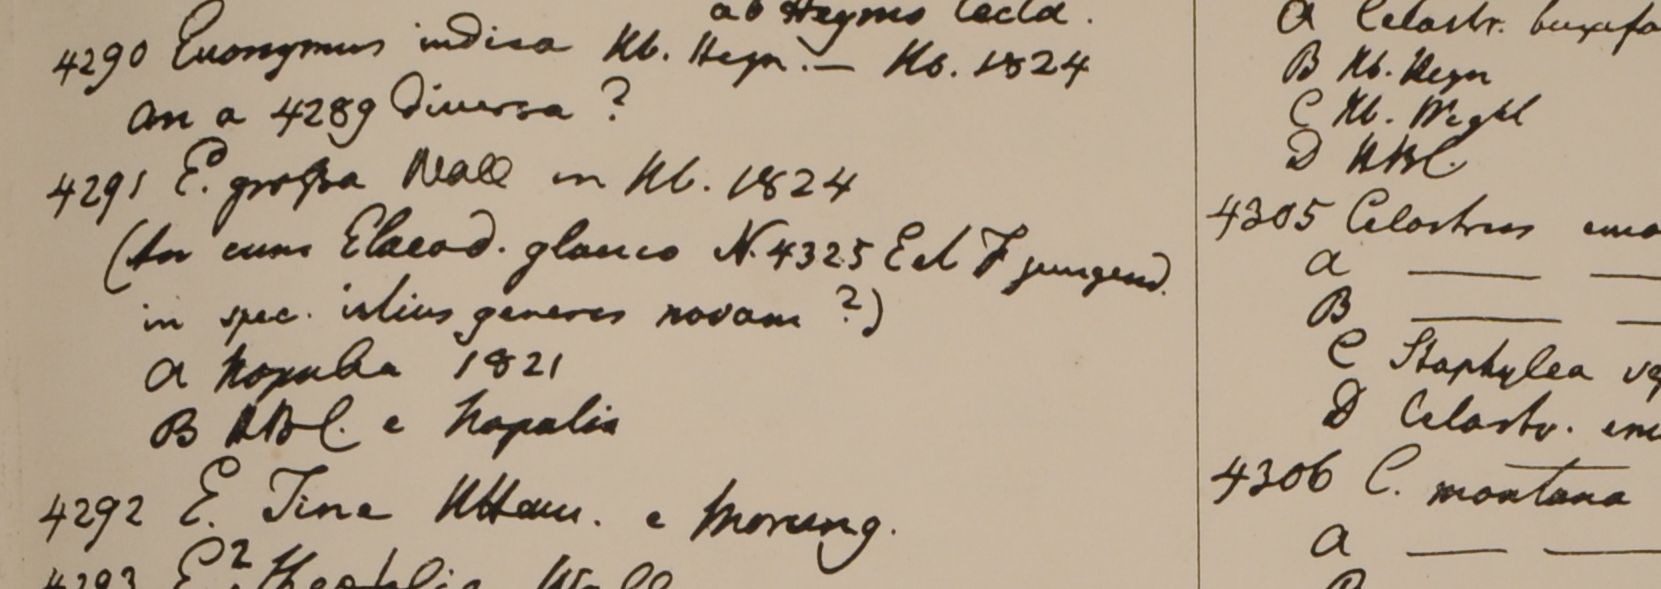 ab Heyneo lecta.
4290 Euonymus indica Hb. Heyn. — Hb. 1824
an a 4289 diversa ?
4291 E. grossa Wall in Hb. 1824
(An cum Elaeod. glauco N. 4325 E et F jungend.
in spec. istius generis novam ?)
a Napalia 1821
B HBC. e Napalia
4292 E. Tine Hb Ham. e Morung.
4293 E. ? Wall
a Celastr.
B Hb. Heyn
C Hb. Wight
D HBC.
4305 Celastrus
a — —
B — —
C Staphylea
D Celastr.
4306 C. montana
a — —
B